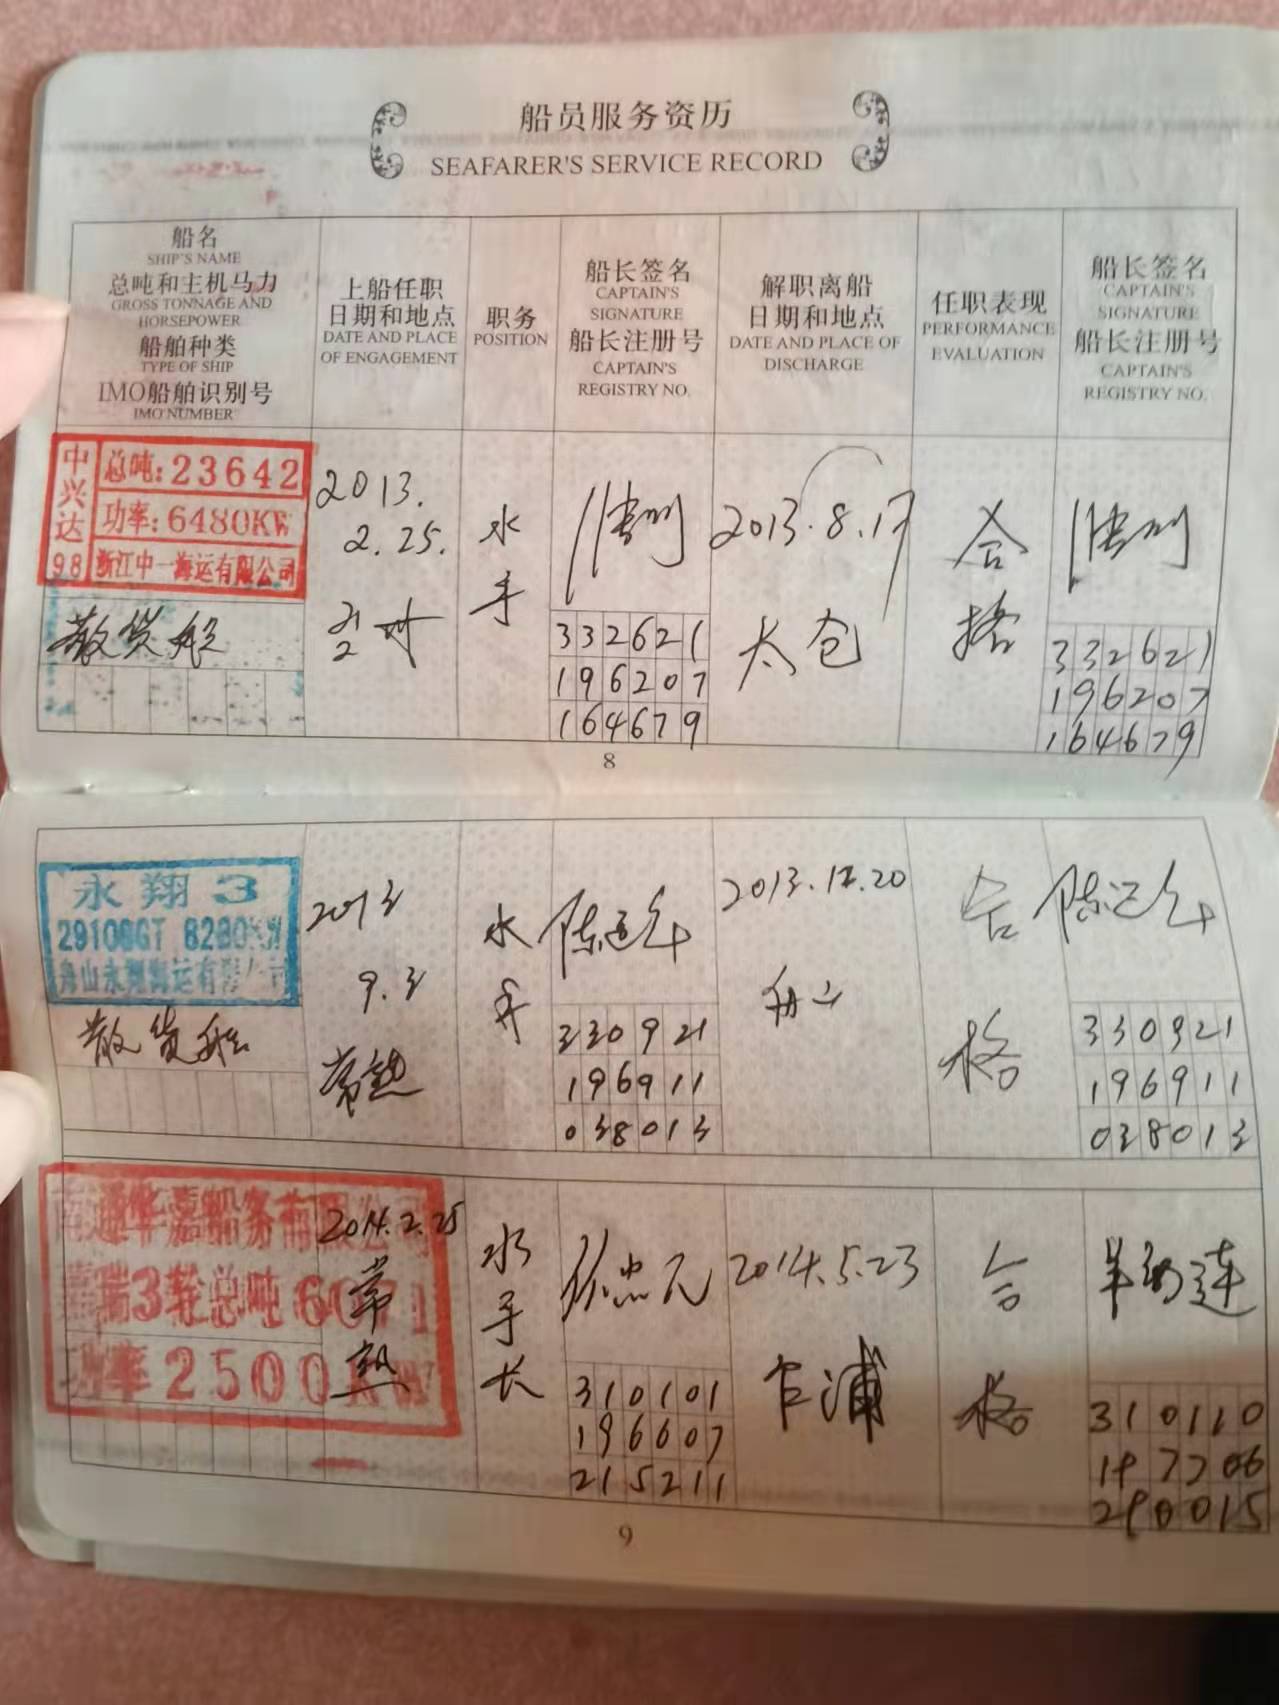 船员服务资历
SEAFARER'S SERVICE RECORD
船名
SHIP'S NAME
总吨和主机马力
GROSS TONNAGE AND
HORSEPOWER
船舶种类
TYPE OF SHIP
IMO船舶识别号
IMO NUMBER
上船任职
日期和地点
DATE AND PLACE
OF ENGAGEMENT
职务
POSITION
船长签名
CAPTAIN'S
SIGNATURE
船长注册号
CAPTAIN'S
REGISTRY NO.
解职离船
日期和地点
DATE AND PLACE OF
DISCHARGE
任职表现
PERFORMANCE
EVALUATION
船长签名
CAPTAIN'S
SIGNATURE
船长注册号
CAPTAIN'S
REGISTRY NO.
中兴达98
总吨:23642
功率:6480KW
浙江中一海运有限公司
散货船
2013.
2.25.
水
手
332621
196207
164679
2013.8.17
太仓
合
格
332621
196207
164679
8
永翔3
29106GT 8280KW
舟山永翔海运有限公司
散货船
2013
9.3
常熟
水
手
330921
196911
038013
2013.12.20
舟山
合
格
330921
196911
038013
南通华嘉船务有限公司
嘉瑞3轮总吨6071
功率2500KW
2014.2.25
常
熟
水
手
长
310101
196607
215211
2014.5.23
乍浦
合
格
310110
197706
290015
9